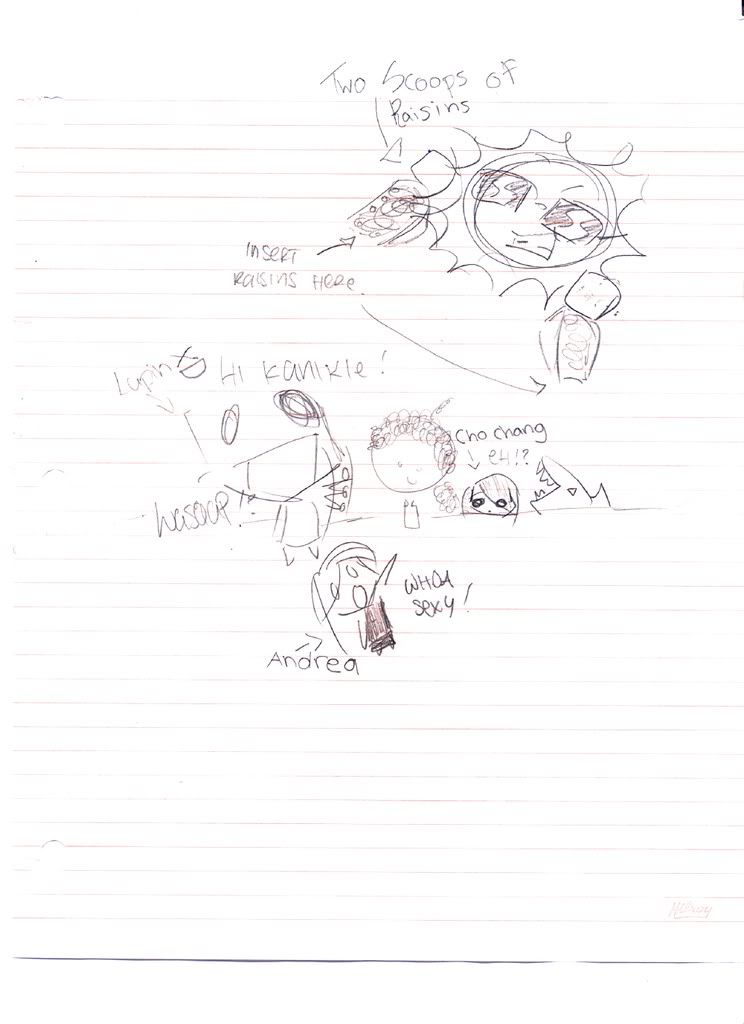 Two Scoops of
Raisins
INSERT
RAISINS HERE
Lupin
Hi KANIKLE!
Cho chang
eH!?
WASOOP!!
WHOA
sexy!
Andrea
Hilroy